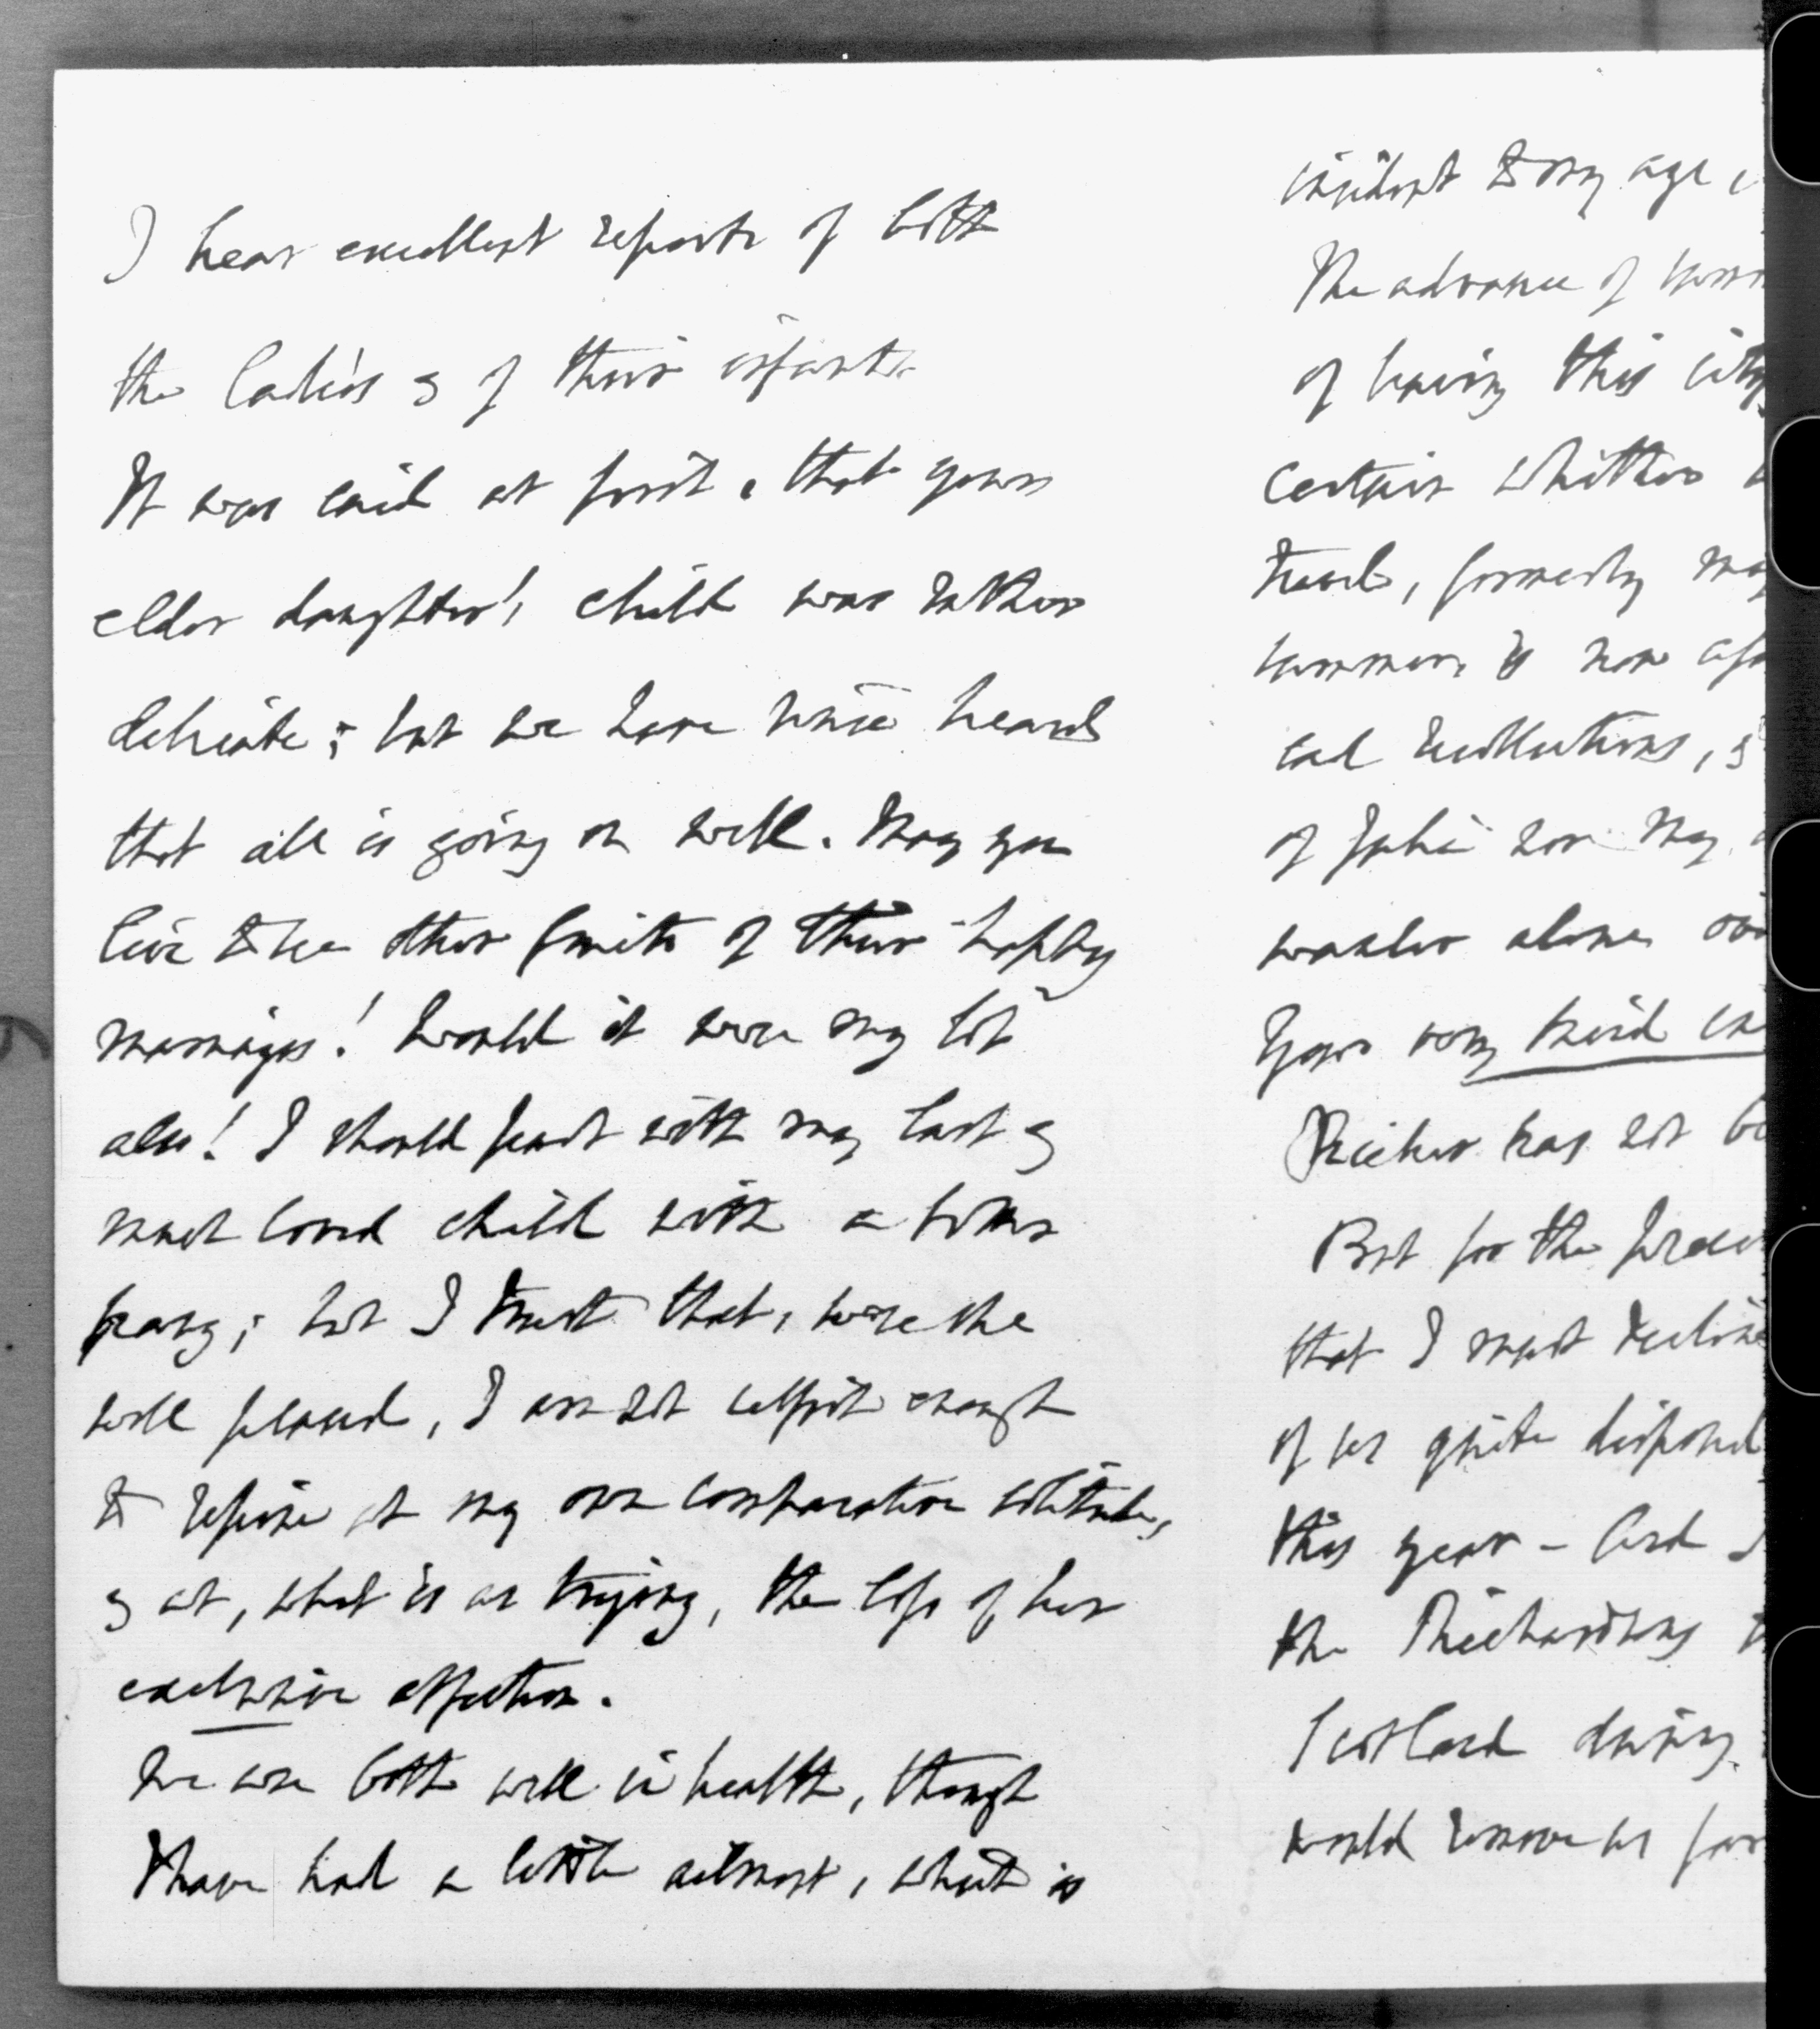 I hear excellent reports of both
the ladies & of their infants.
It was said at first, that your
elder daughter's child was rather
delicate; but we have since heard
that all is going on well. May you
live to see other fruits of their happy
marriages! Would it were my lot
also! I should part with my last &
most loved child with a
pang; but I trust that, were she
well placed, I am not selfish enough
to repine at my own comparative solitude,
& at, what is as trying, the loss of her
exclusive affection.
We are both well in health, though
I have had a little ailment, what is
incident to my age
The advance of
of leaving this city
certain whither
travel, formerly
summer, is now
sad recollections, &
of Julia nor my
wander alone
Your very kind
Richer has not
But for the
that I must decline
of us quite disposed
this year – Lord
the Richardsons
Scotland during
would remove us far